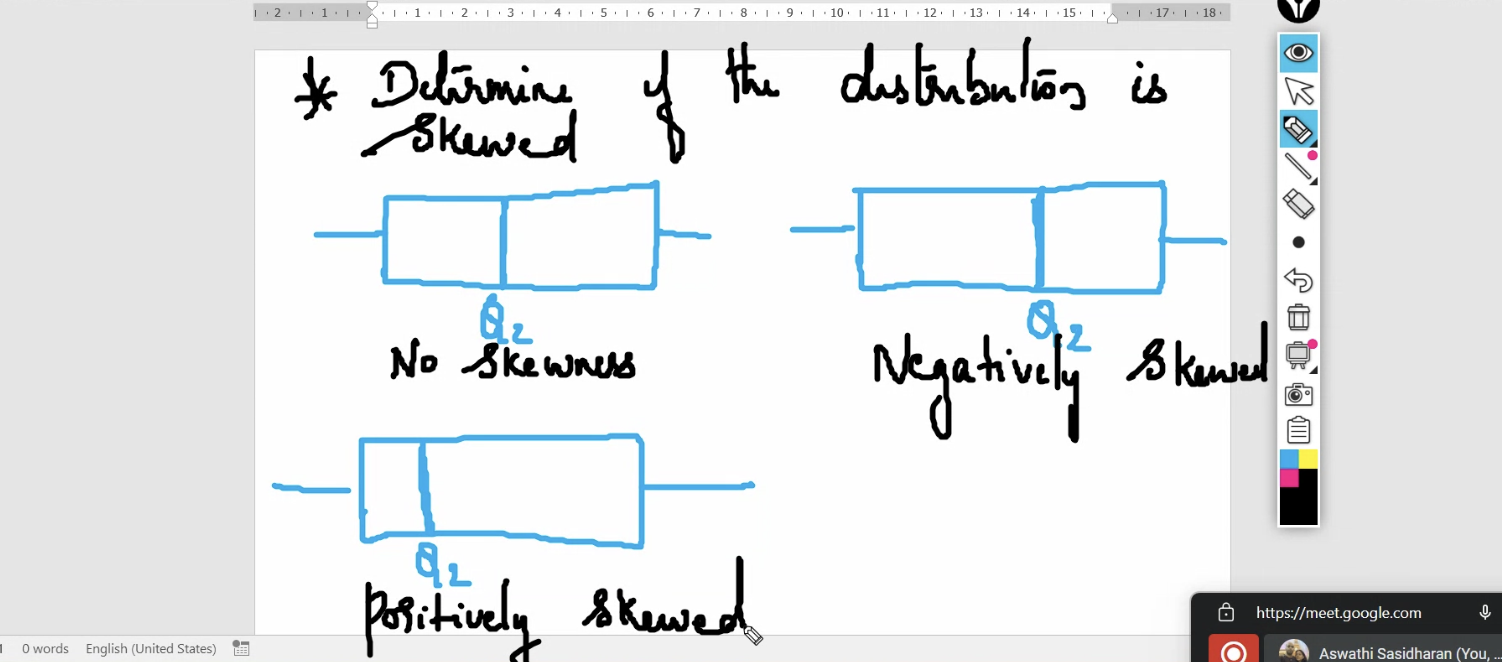 2 1 1 2 3 4 5 6 7 8 9 10 11 12 13 14 15 17 18
* Determine if the distribution is
Skewed
Q2
Q2
No Skewness
Negatively Skewed
Q2
Positively Skewed
0 words English (United States)
https://meet.google.com
Aswathi Sasidharan (You, ...